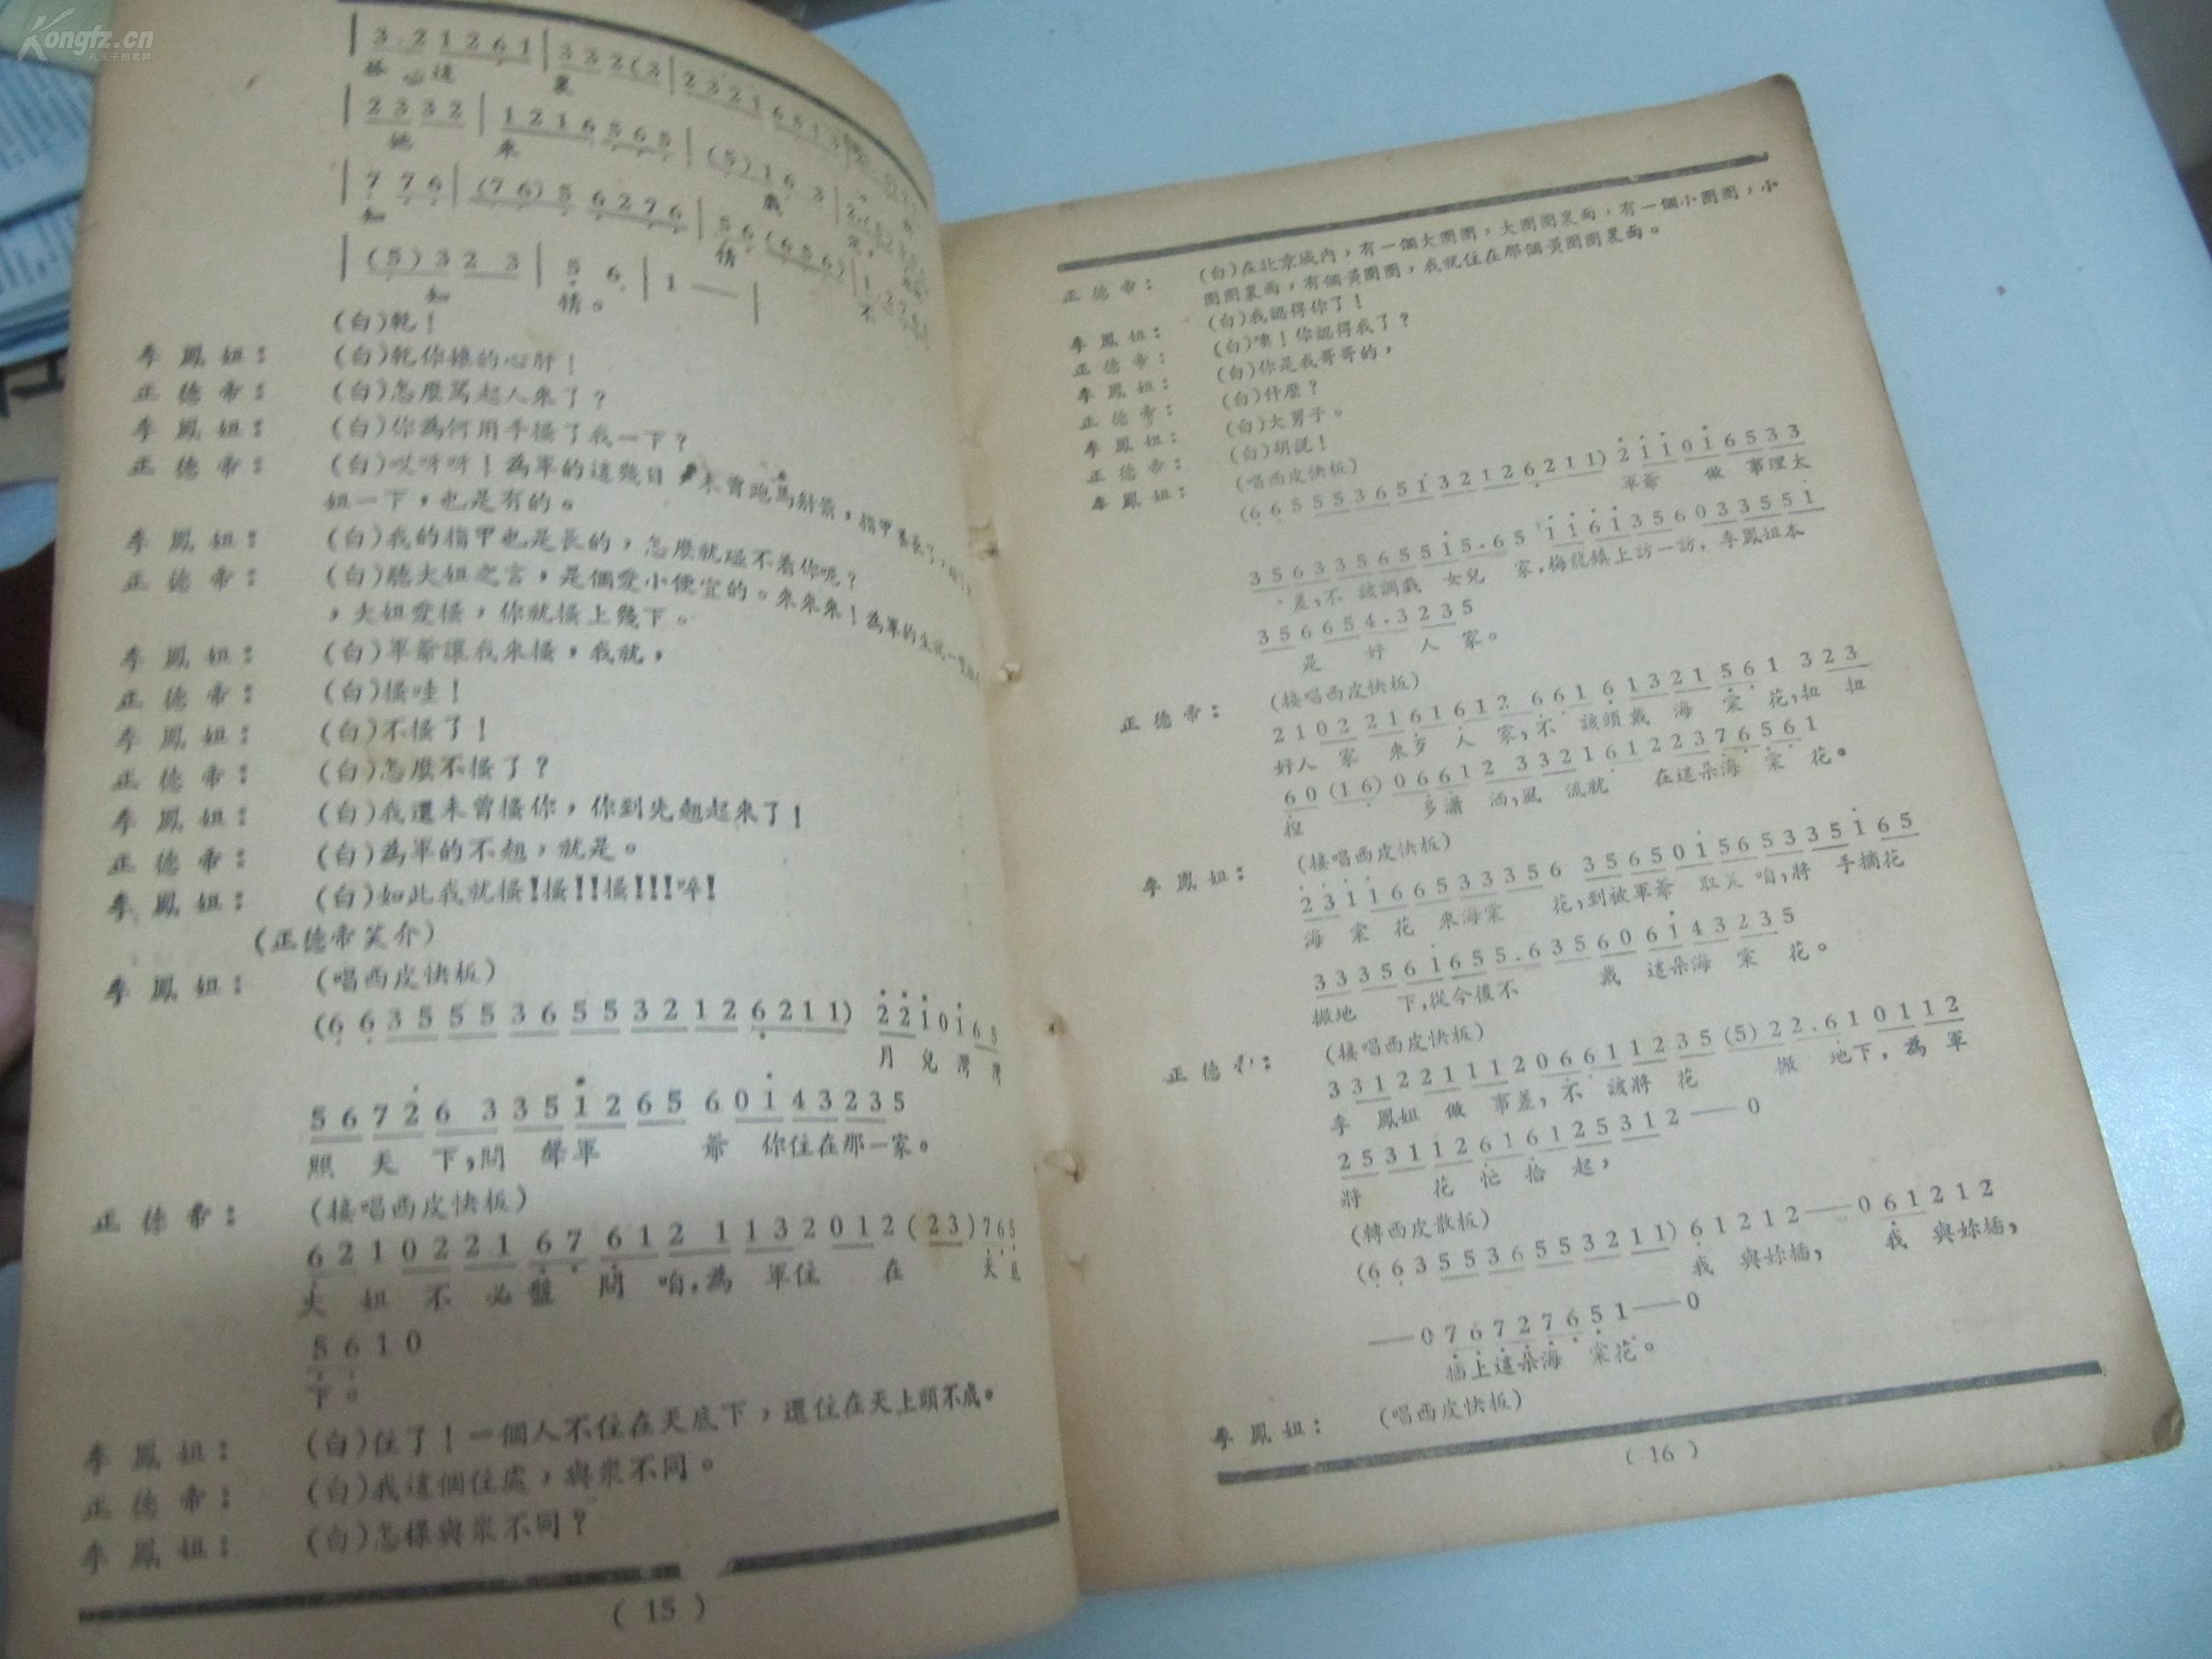 Kongfz.cn
3.21261|332(3|23216513
孫 這 裏
|2332|1216565|(5)163
她 來 戲
|776|(76)56276|56(656)
知 情 不
|(5)323|56|1—|
知 情。
(白)乾!
李鳳姐: (白)乾你娘的心肝!
正德帝: (白)怎麼罵起人來了?
李鳳姐: (白)你為何用手搔了我一下?
正德帝: (白)哎呀呀!為軍的這幾日,未曾跑馬射箭,指甲養長了,
姐一下,也是有的。
李鳳姐: (白)我的指甲也是長的,怎麼就碰不着你呢?
正德帝: (白)聽大姐之言,是個愛小便宜的。來來來!為軍的
,大姐愛搔,你就搔上幾下。
李鳳姐: (白)軍爺讓我來搔,我就,
正德帝: (白)搔哇!
李鳳姐: (白)不搔了!
正德帝: (白)怎麼不搔了?
李鳳姐: (白)我還未曾搔你,你到先翹起來了!
正德帝: (白)為軍的不翹,就是。
李鳳姐: (白)如此我就搔!搔!!搔!!!啐!
(正德帝笑介)
李鳳姐: (唱西皮快板)
(663555365532126211)2210165
月兒灣灣
56726335126560143235
照天下,問聲軍爺你住在那一家。
正德帝: (接唱西皮快板)
6210221676121132012(23)765
大姐不必盤問咱,為軍住在天底
5610
下。
李鳳姐: (白)住了!一個人不住在天底下,還住在天上頭不成。
正德帝: (白)我這個住處,與衆不同。
李鳳姐: (白)怎樣與衆不同?
(15)
正德帝: (白)在北京城內,有一個大圈圈,大圈圈裏面,有一個小圈圈,小
圈圈裏面,有個黃圈圈,我就住在那個黃圈圈裏面。
李鳳姐: (白)我認得你了!
正德帝: (白)噢!你認得我了?
李鳳姐: (白)你是我哥哥的,
正德帝: (白)什麼?
李鳳姐: (白)大男子。
正德帝: (白)胡說!
李鳳姐: (唱西皮快板)
(66555365132126211)211016533
軍爺做事理太
35633565515.651161356033551
差,不該調戲女兒家,梅龍鎮上訪一訪,李鳳姐本
356654.3235
是好人家。
正德帝: (接唱西皮快板)
21022216161266161321561323
好人家來歹人家,不該頭戴海棠花,扭扭
60(16)06612332161223765 61
捏多瀟洒,風流就在這朵海棠花。
李鳳姐: (接唱西皮快板)
231166533356356501565335165
海棠花來海棠花,到被軍爺取笑咱,將手摘花
3335616555.63560614 3235
撇地下,從今後不戴這朵海棠花。
正德帝: (接唱西皮快板)
33122111206611235(5)22.610112
李鳳姐做事差,不該將花撇地下,為軍
253112616125312—0
將花忙拾起,
(轉西皮散板)
(6635536553211)61212—061212
我與妳插,我與妳插,
—0767276 51—0
插上這朵海棠花。
李鳳姐: (唱西皮快板)
(16)